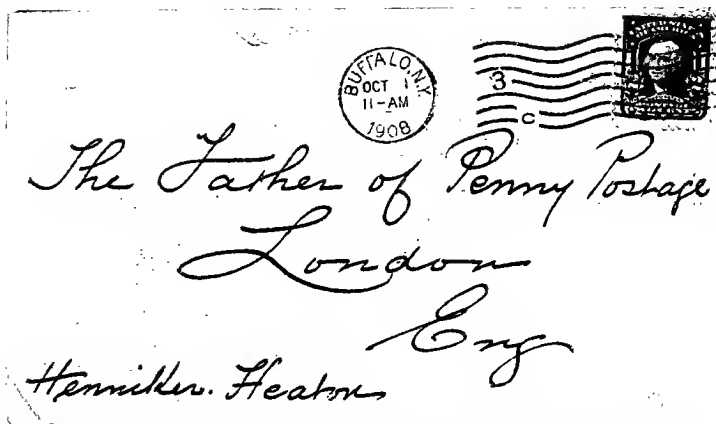 BUFFALO, N.Y.
OCT 1
11-AM
1908
3
C
The Father of Penny Postage
London
Eng
Henniker. Heaton